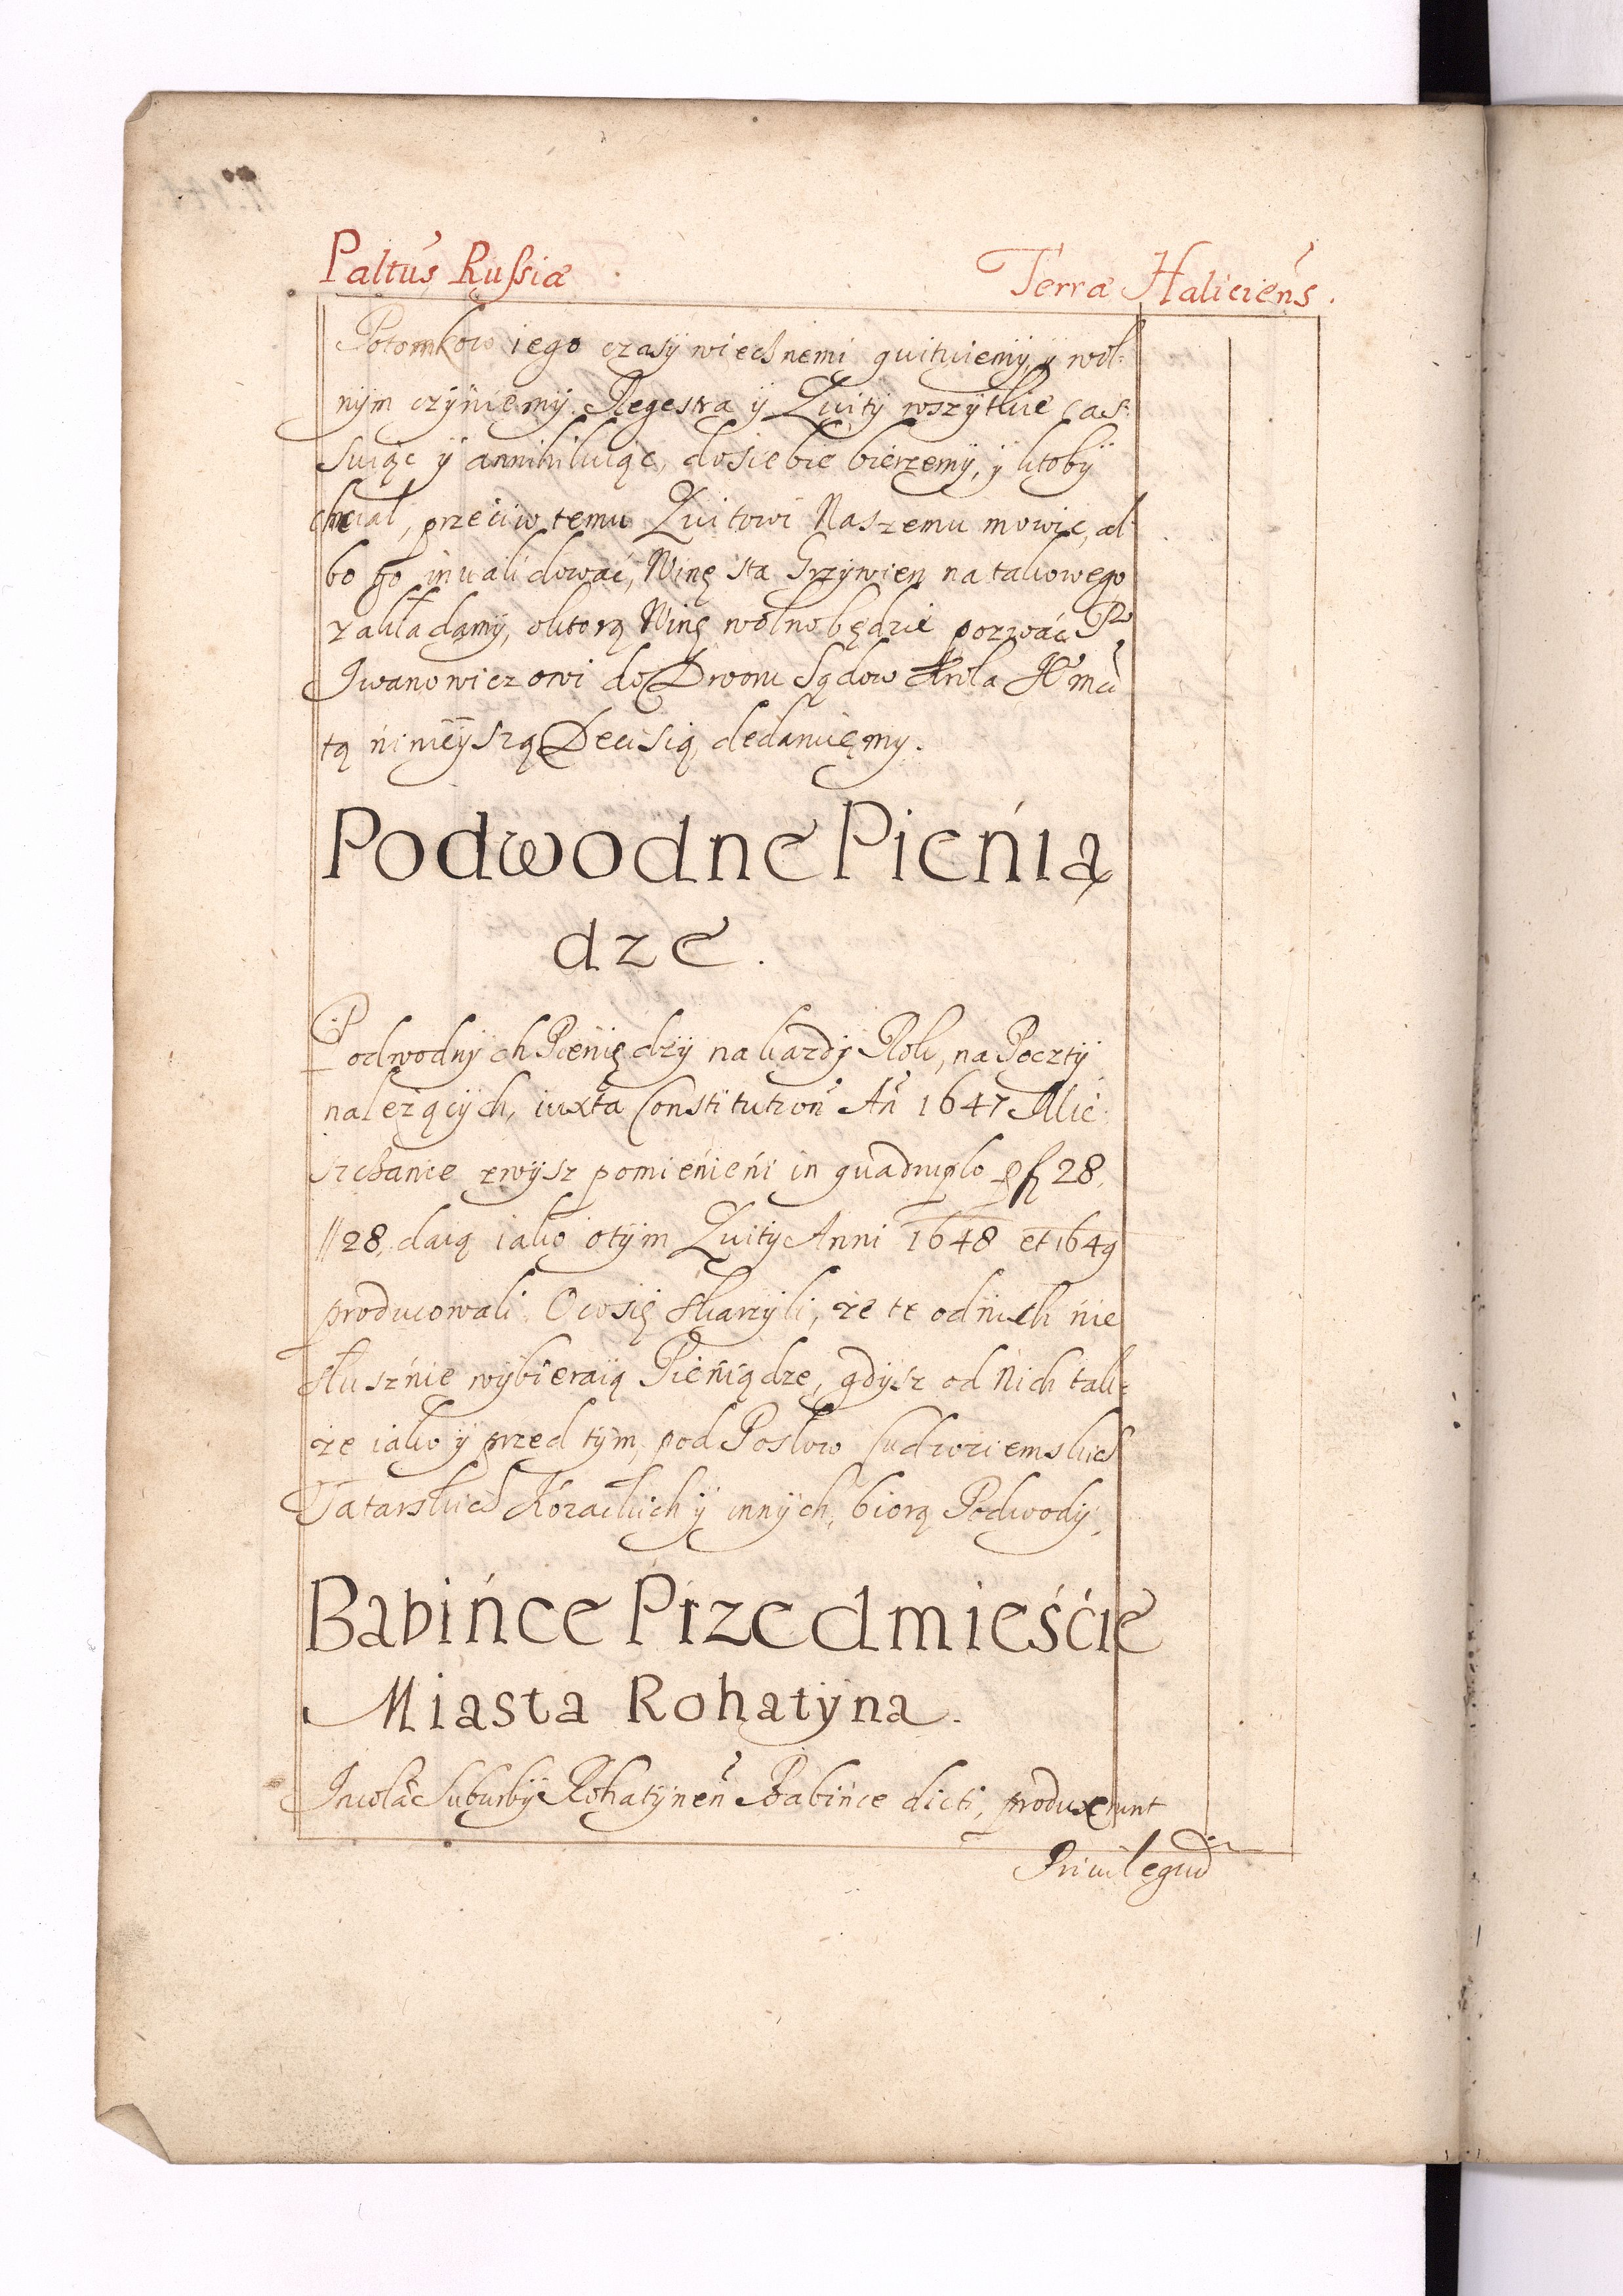 Paltus Russiæ
Terræ Haliciens.
Potomkow iego czasy wiecznemi quituiemy, y wol:
nym czyniemy. Regestra y Quity wszytkie cas:
suiąc y annihiluiąc, do siebie bierzemy, y ktoby
chciał, przeciw temu Quitowi Naszemu mowic, al:
bo go inualidować, Winę sta Grzywien na takowego
zakładamy, oktorą Winę wolno będzie pozwać Pu
Iwanowiczowi do Dworu Sądow Krola JE° mci
tą ninieyszą Decisią dedaruięmy.
Podwodne Pieńią
dze.
Podwodnych Pieniędzy na kazdy Rok, na Poczty
nalezących, iuxta Constitution An 1647 Mie:
szczanie zwysz pomieńieńi in quadruplo fl 28.
//28. daią iako otym Quity Anni 1648 et 1649
producowali. Oco się skarzyli, że te od nich nie
słusźnie wybieraią Pieńiądze, gdysz od Nich tak:
że iako y przed tym, pod Posłow Cudzoziemskich
Tatarskich Kozackich y innych, biorą Podwody.
Babińce Przedmieśćie
Miasta Rohatyna.
Incolæ Suburbij Rohatynen Babińce dicti, produxerunt
Priuilegium